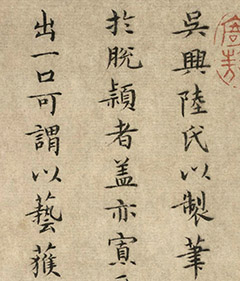 吳興陸氏以製筆
於脫穎者盖亦寅
出一口可謂以藝